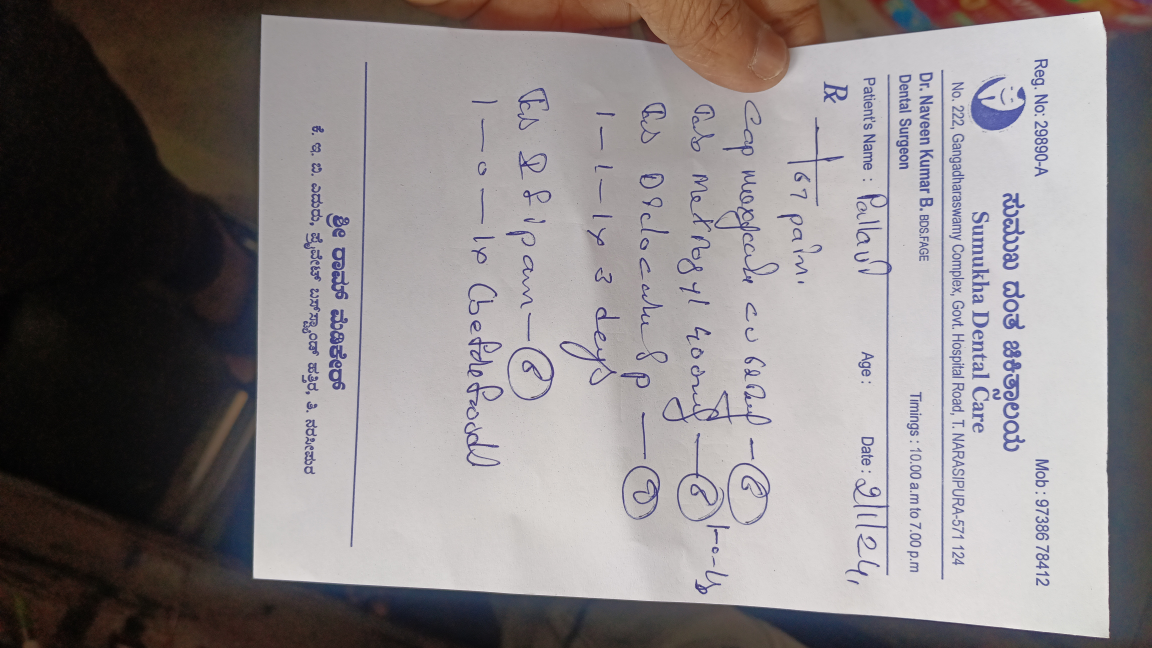 Reg. No: 29890-A Mob : 97386 78412
ಸುಮುಖ ದಂತ ಚಿಕಿತ್ಸಾಲಯ
Sumukha Dental Care
No. 222, Gangadharaswamy Complex, Govt. Hospital Road, T. NARASIPURA-571 124
Dr. Naveen Kumar B. BDS.FAGE Timings : 10.00 a.m to 7.00 p.m
Dental Surgeon
Patient's Name : Pallavi Age : Date : 2/1/24
Rx
67 pain
Cap CV
Tab Metrogyl 400mg - 6 1-0-1
Tab P
1-1-1 x 3 days
Tab
1-0-1 x (before food)
ಶ್ರೀ ರಾಮ್ ಮೆಡಿಕೇರ್
ಕೆ. ಇ. ಬಿ. ಎದುರು, ಪ್ರೈವೇಟ್ ಬಸ್‌ಸ್ಟ್ಯಾಂಡ್ ಹತ್ತಿರ, ತಿ. ನರಸೀಪುರ